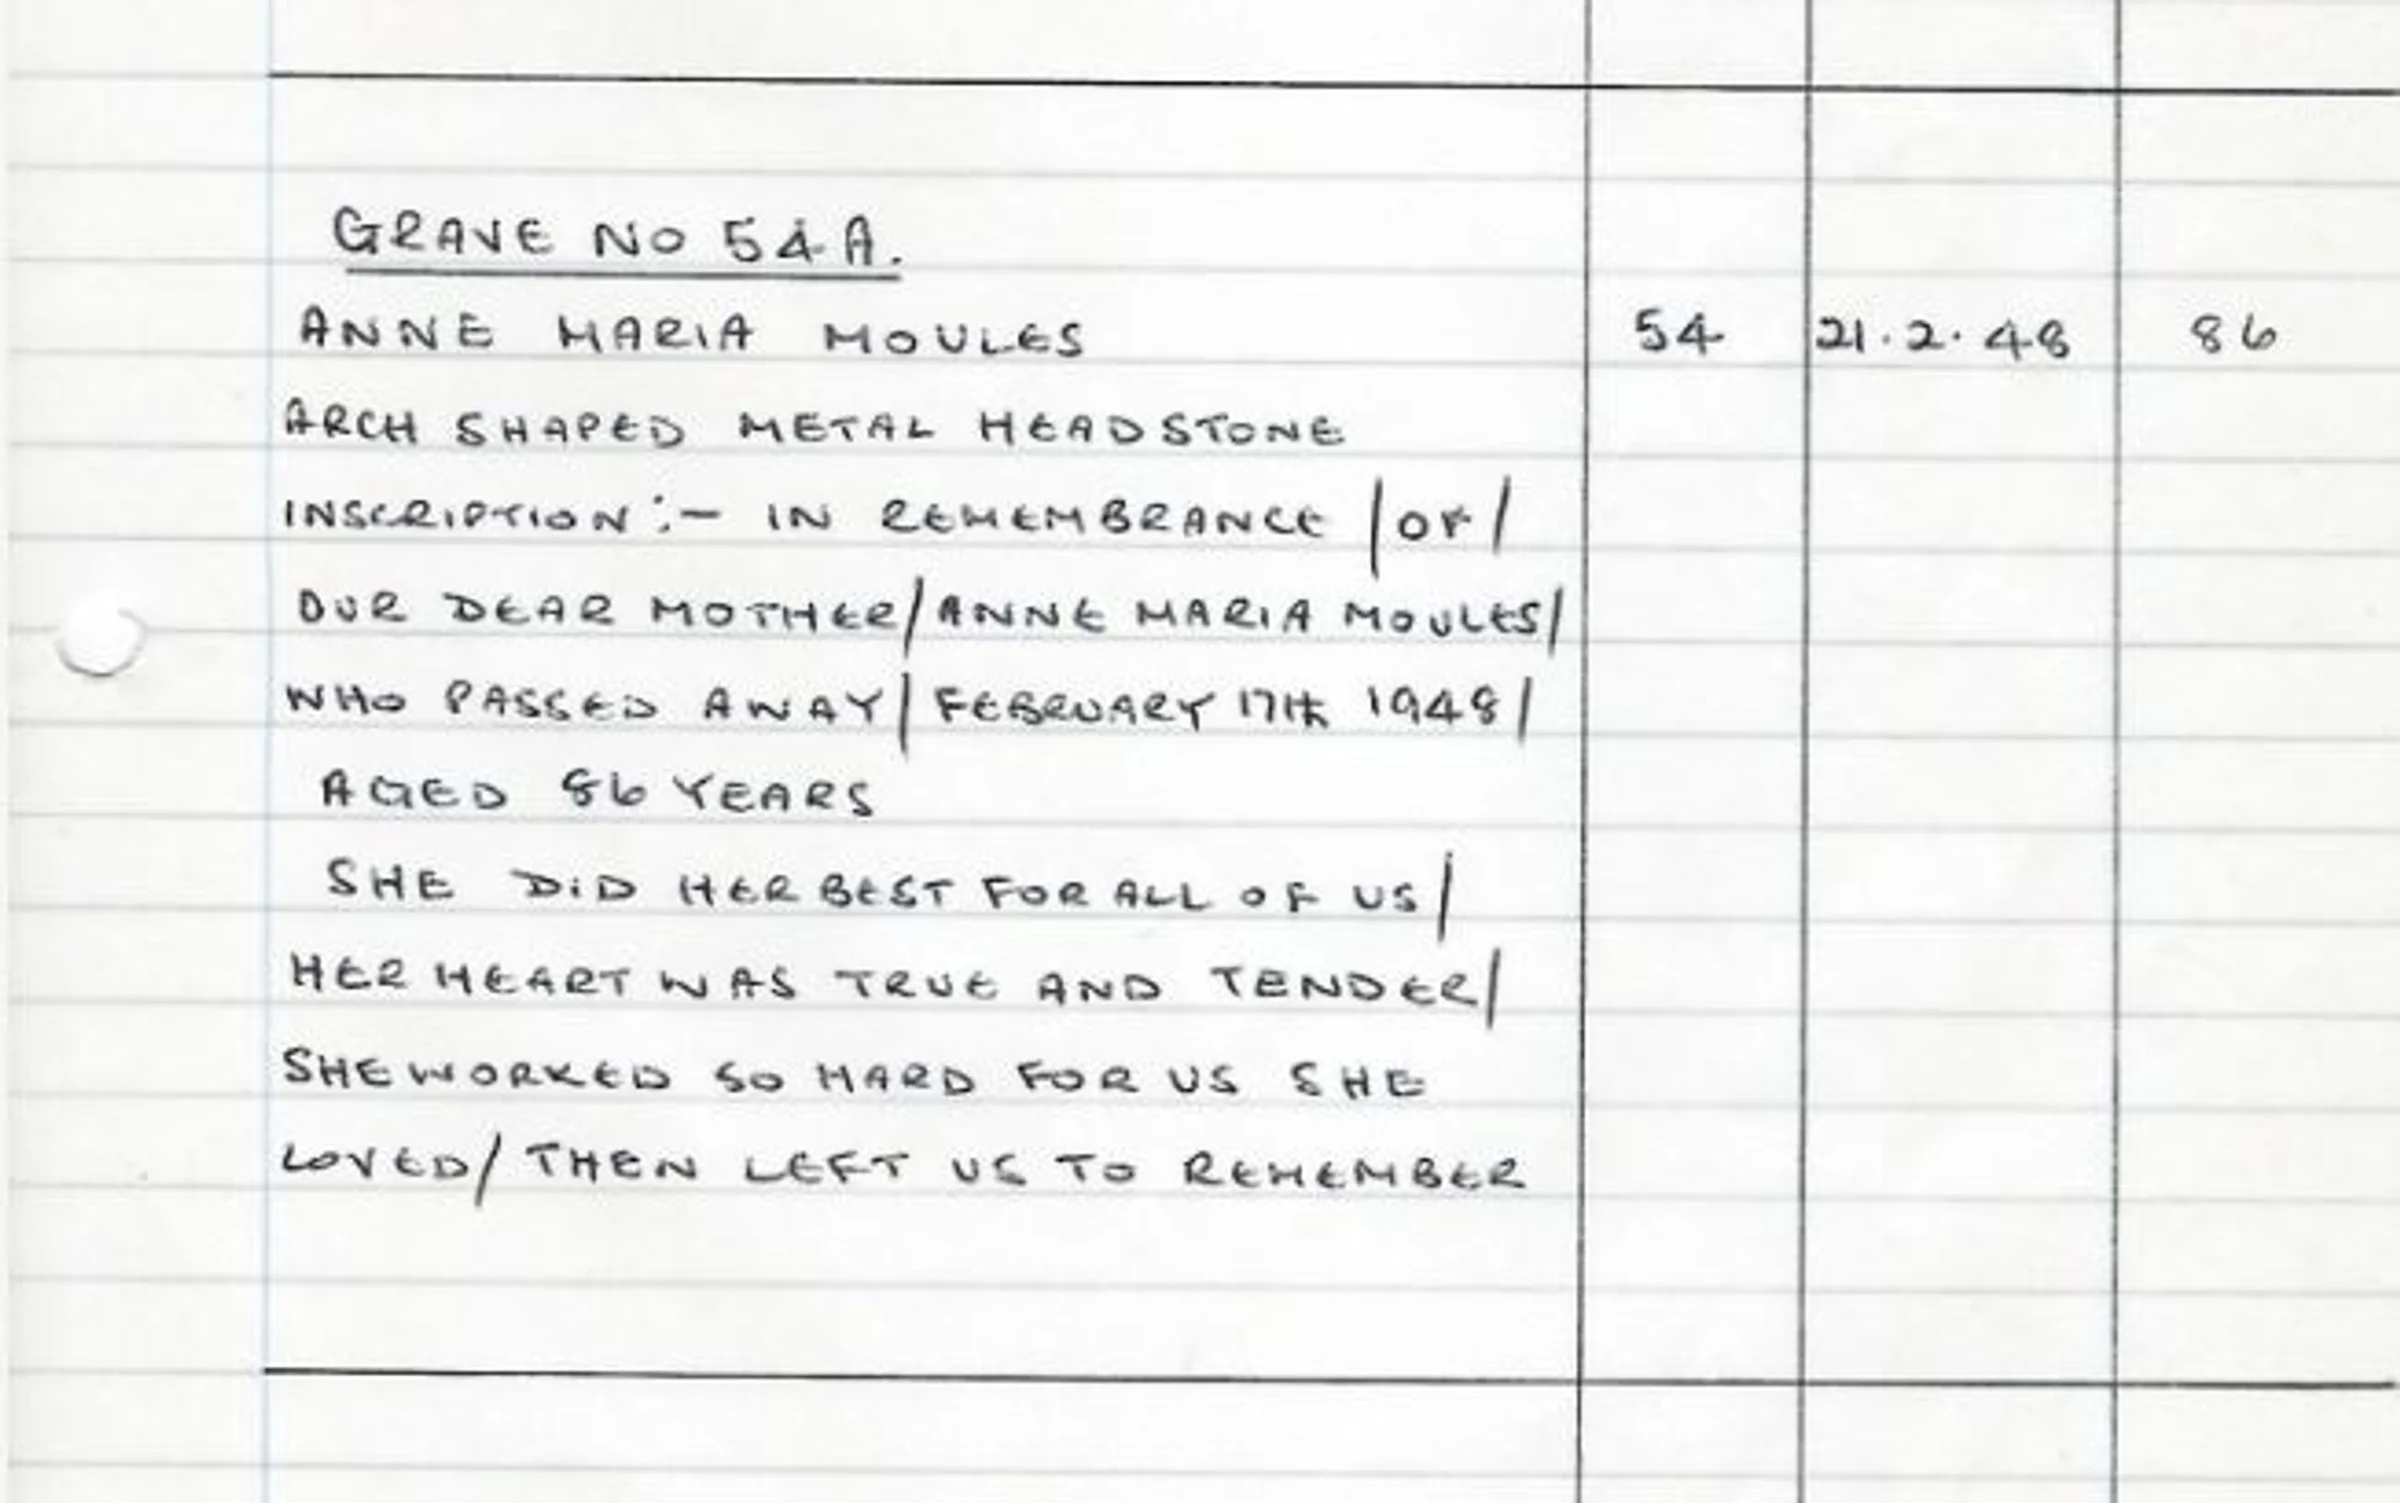 GRAVE NO 54A.
ANNE MARIA MOULES 54 21.2.48 86
ARCH SHAPED METAL HEADSTONE
INSCRIPTION :- IN REMEMBRANCE / OF /
OUR DEAR MOTHER / ANNE MARIA MOULES /
WHO PASSED AWAY / FEBRUARY 17th 1948 /
AGED 86 YEARS
SHE DID HER BEST FOR ALL OF US /
HER HEART WAS TRUE AND TENDER /
SHE WORKED SO HARD FOR US SHE
LOVED / THEN LEFT US TO REMEMBER